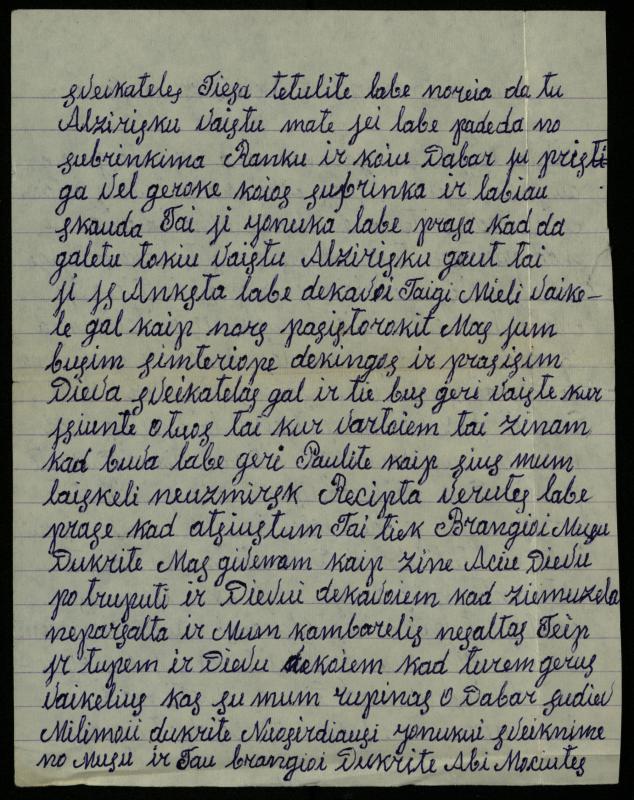 sveikateles Tiesa tetulite labe noreia da tu
Alzirisku vaistu mate jei labe padeda no
subrinkima Ranku ir koiu Dabar ju pristi
ga vel geroke koios susbrinka ir labiau
skauda Tai ji yonuka labe prasa kad da
galetu tokiu vaistu Alzirisku gaut tai
ji js Anksta labe dekavoi Taigi Mieli vaike-
le gal kaip nors pasistorokit Mas jum
busim simteriope dekingos ir prasisim
Dieva sveikatelas gal ir tie bus geri vaiste kur
jsiunte otuos tai kur vartoiem tai zinam
kad buva labe geri Paulite kaip sius mum
laiskeli neuzmirsk Recipta verutes labe
prase kad atsiustum Tai tiek Brangioi Musu
Dukrite Mas givenam kaip zine Aciu Dievu
po truputi ir Dievui dekavoiem kad ziemuzela
neparsalta ir Mum kambarelis nesaltas Teip
jr tupem ir Dievu dekoiem kad turem gerus
vaikelius kas su mum rupinas O Dabar sudiev
Milimoii dukrite Nuosirdiausi yonukui sveiknime
no Musu ir Tau brangioi Dukrite Abi Mociutes